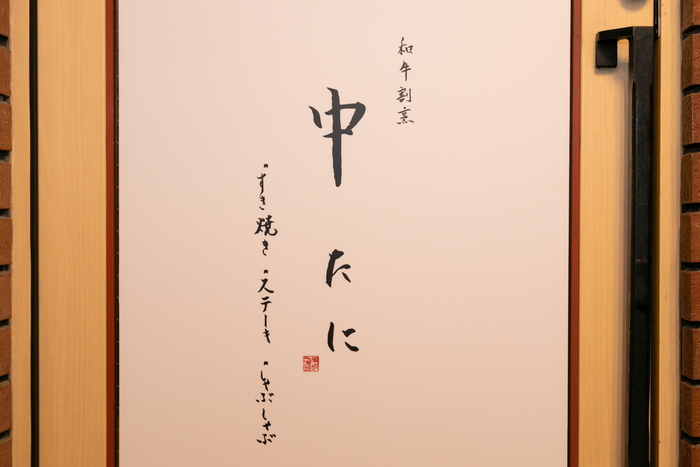 和牛割烹
中たに
・すき焼き・ステーキ・しゃぶしゃぶ